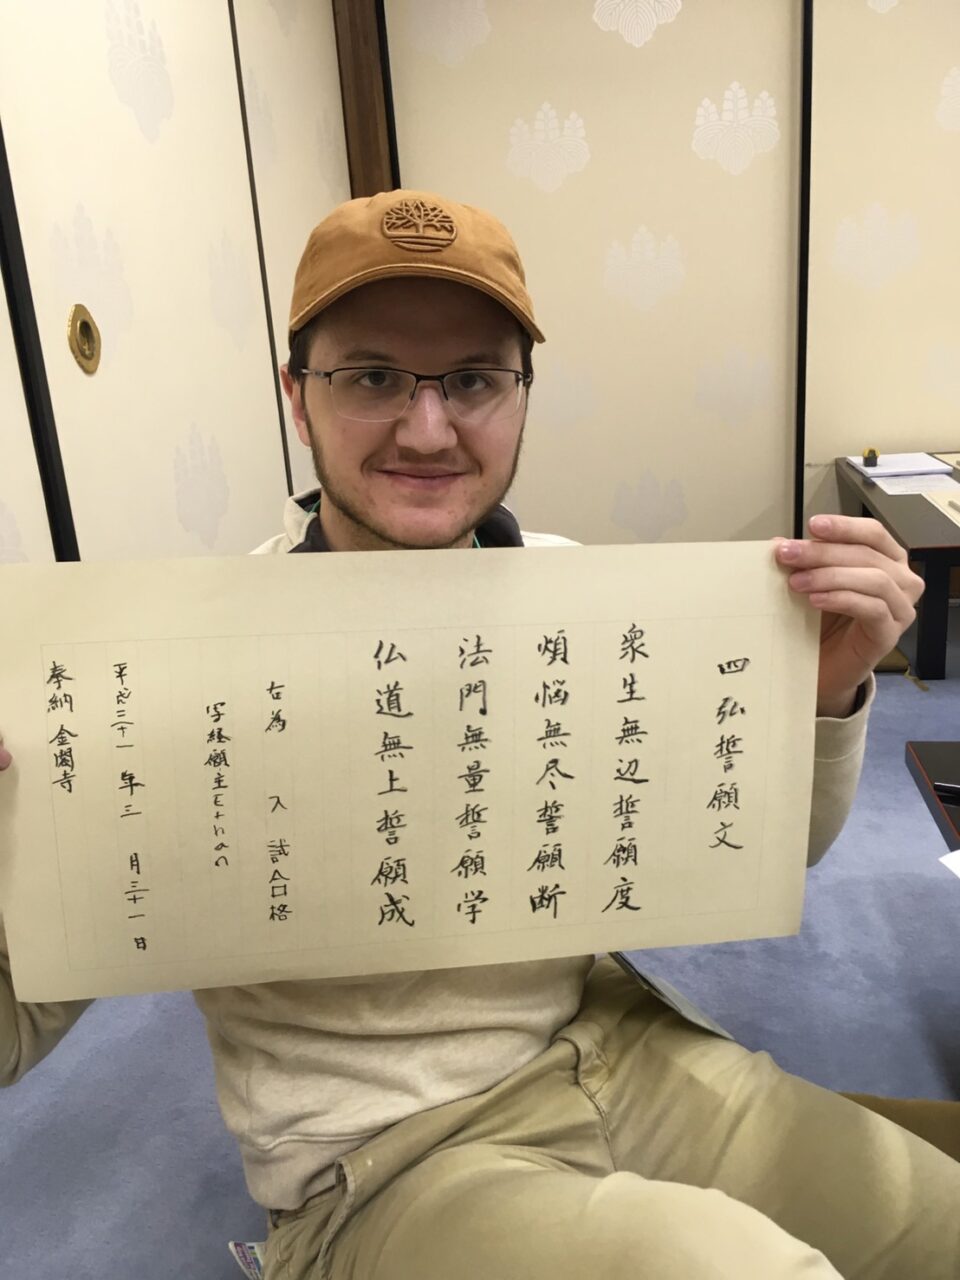 四弘誓願文
衆生無辺誓願度
煩悩無尽誓願断
法門無量誓願学
仏道無上誓願成
右為 入試合格
写経願主Ethan
平成三十一年三月三十一日
奉納 金閣寺